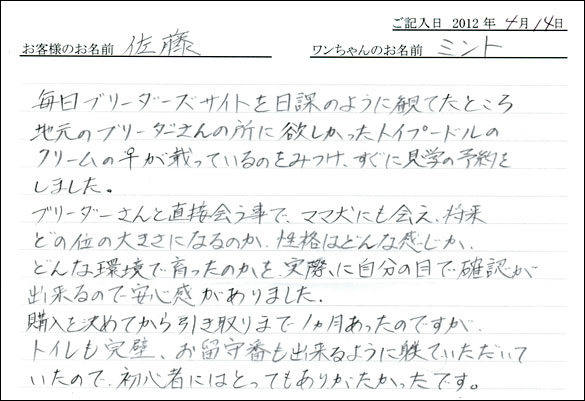 ご記入日 2012 年 4月 14日
お客様のお名前 佐藤 ワンちゃんのお名前 ミント
毎日ブリーダーズサイトを日課のように観てたところ
地元のブリーダーさんの所に欲しかったトイプードルの
クリームの早が載っているのをみつけ、すぐに見学の予約を
しました。
ブリーダーさんと直接会う事で、ママ犬にも会え、将来
どの位の大きさになるのか、性格はどんな感じか、
どんな環境で育ったのかを、実際に自分の目で確認が
出来るので安心感がありました。
購入を決めてから引き取りまで1ヵ月あったのですが、
トイレも完璧、お留守番も出来るように躾ていただいて
いたので、初心者にはとってもありがたかったです。